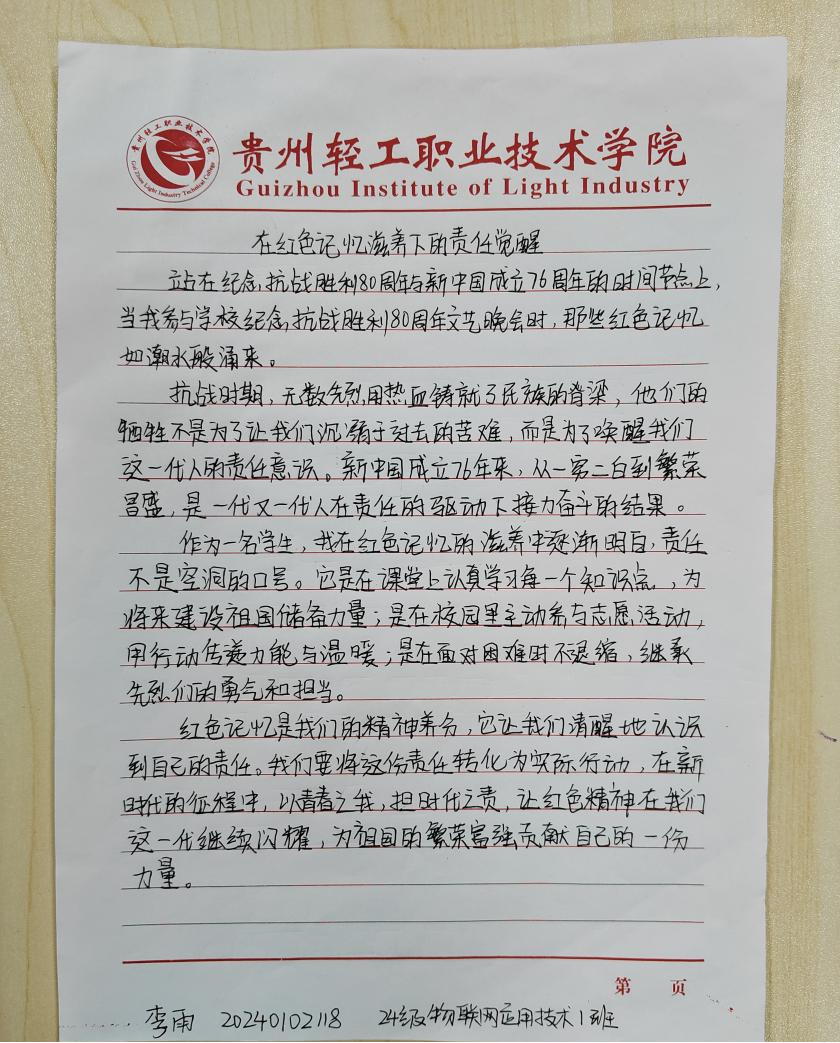 贵州轻工职业技术学院
Guizhou Institute of Light Industry
贵州轻工职业技术学院
Gui Zhou Light Industry Technical College
在红色记忆滋养下的责任觉醒
站在纪念抗战胜利80周年与新中国成立76周年的时间节点上,
当我参与学校纪念抗战胜利80周年文艺晚会时,那些红色记忆
如潮水般涌来。
抗战时期,无数先烈用热血铸就了民族的脊梁,他们的
牺牲不是为了让我们沉溺于过去的苦难,而是为了唤醒我们
这一代人的责任意识。新中国成立76年来,从一穷二白到繁荣
昌盛,是一代又一代人在责任的驱动下接力奋斗的结果。
作为一名学生,我在红色记忆的滋养中逐渐明白,责任
不是空洞的口号。它是在课堂上认真学习每一个知识点,为
将来建设祖国储备力量;是在校园里主动参与志愿活动,
用行动传递力能与温暖;是在面对困难时不退缩,继承
先烈们的勇气和担当。
红色记忆是我们的精神养分,它让我们清醒地认识
到自己的责任。我们要将这份责任转化为实际行动,在新
时代的征程中,以青春之我,担时代之责,让红色精神在我们
这一代继续闪耀,为祖国的繁荣富强贡献自己的一份
力量。
第 页
李雨 20240102118 24级物联网应用技术1班